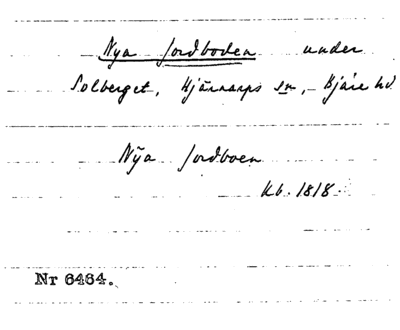 Nya Jordboden under
Solberget, Hjärnarps sn, Bjäre hd
Nÿa Jordboen
Kb. 1818.
Nr 6464.